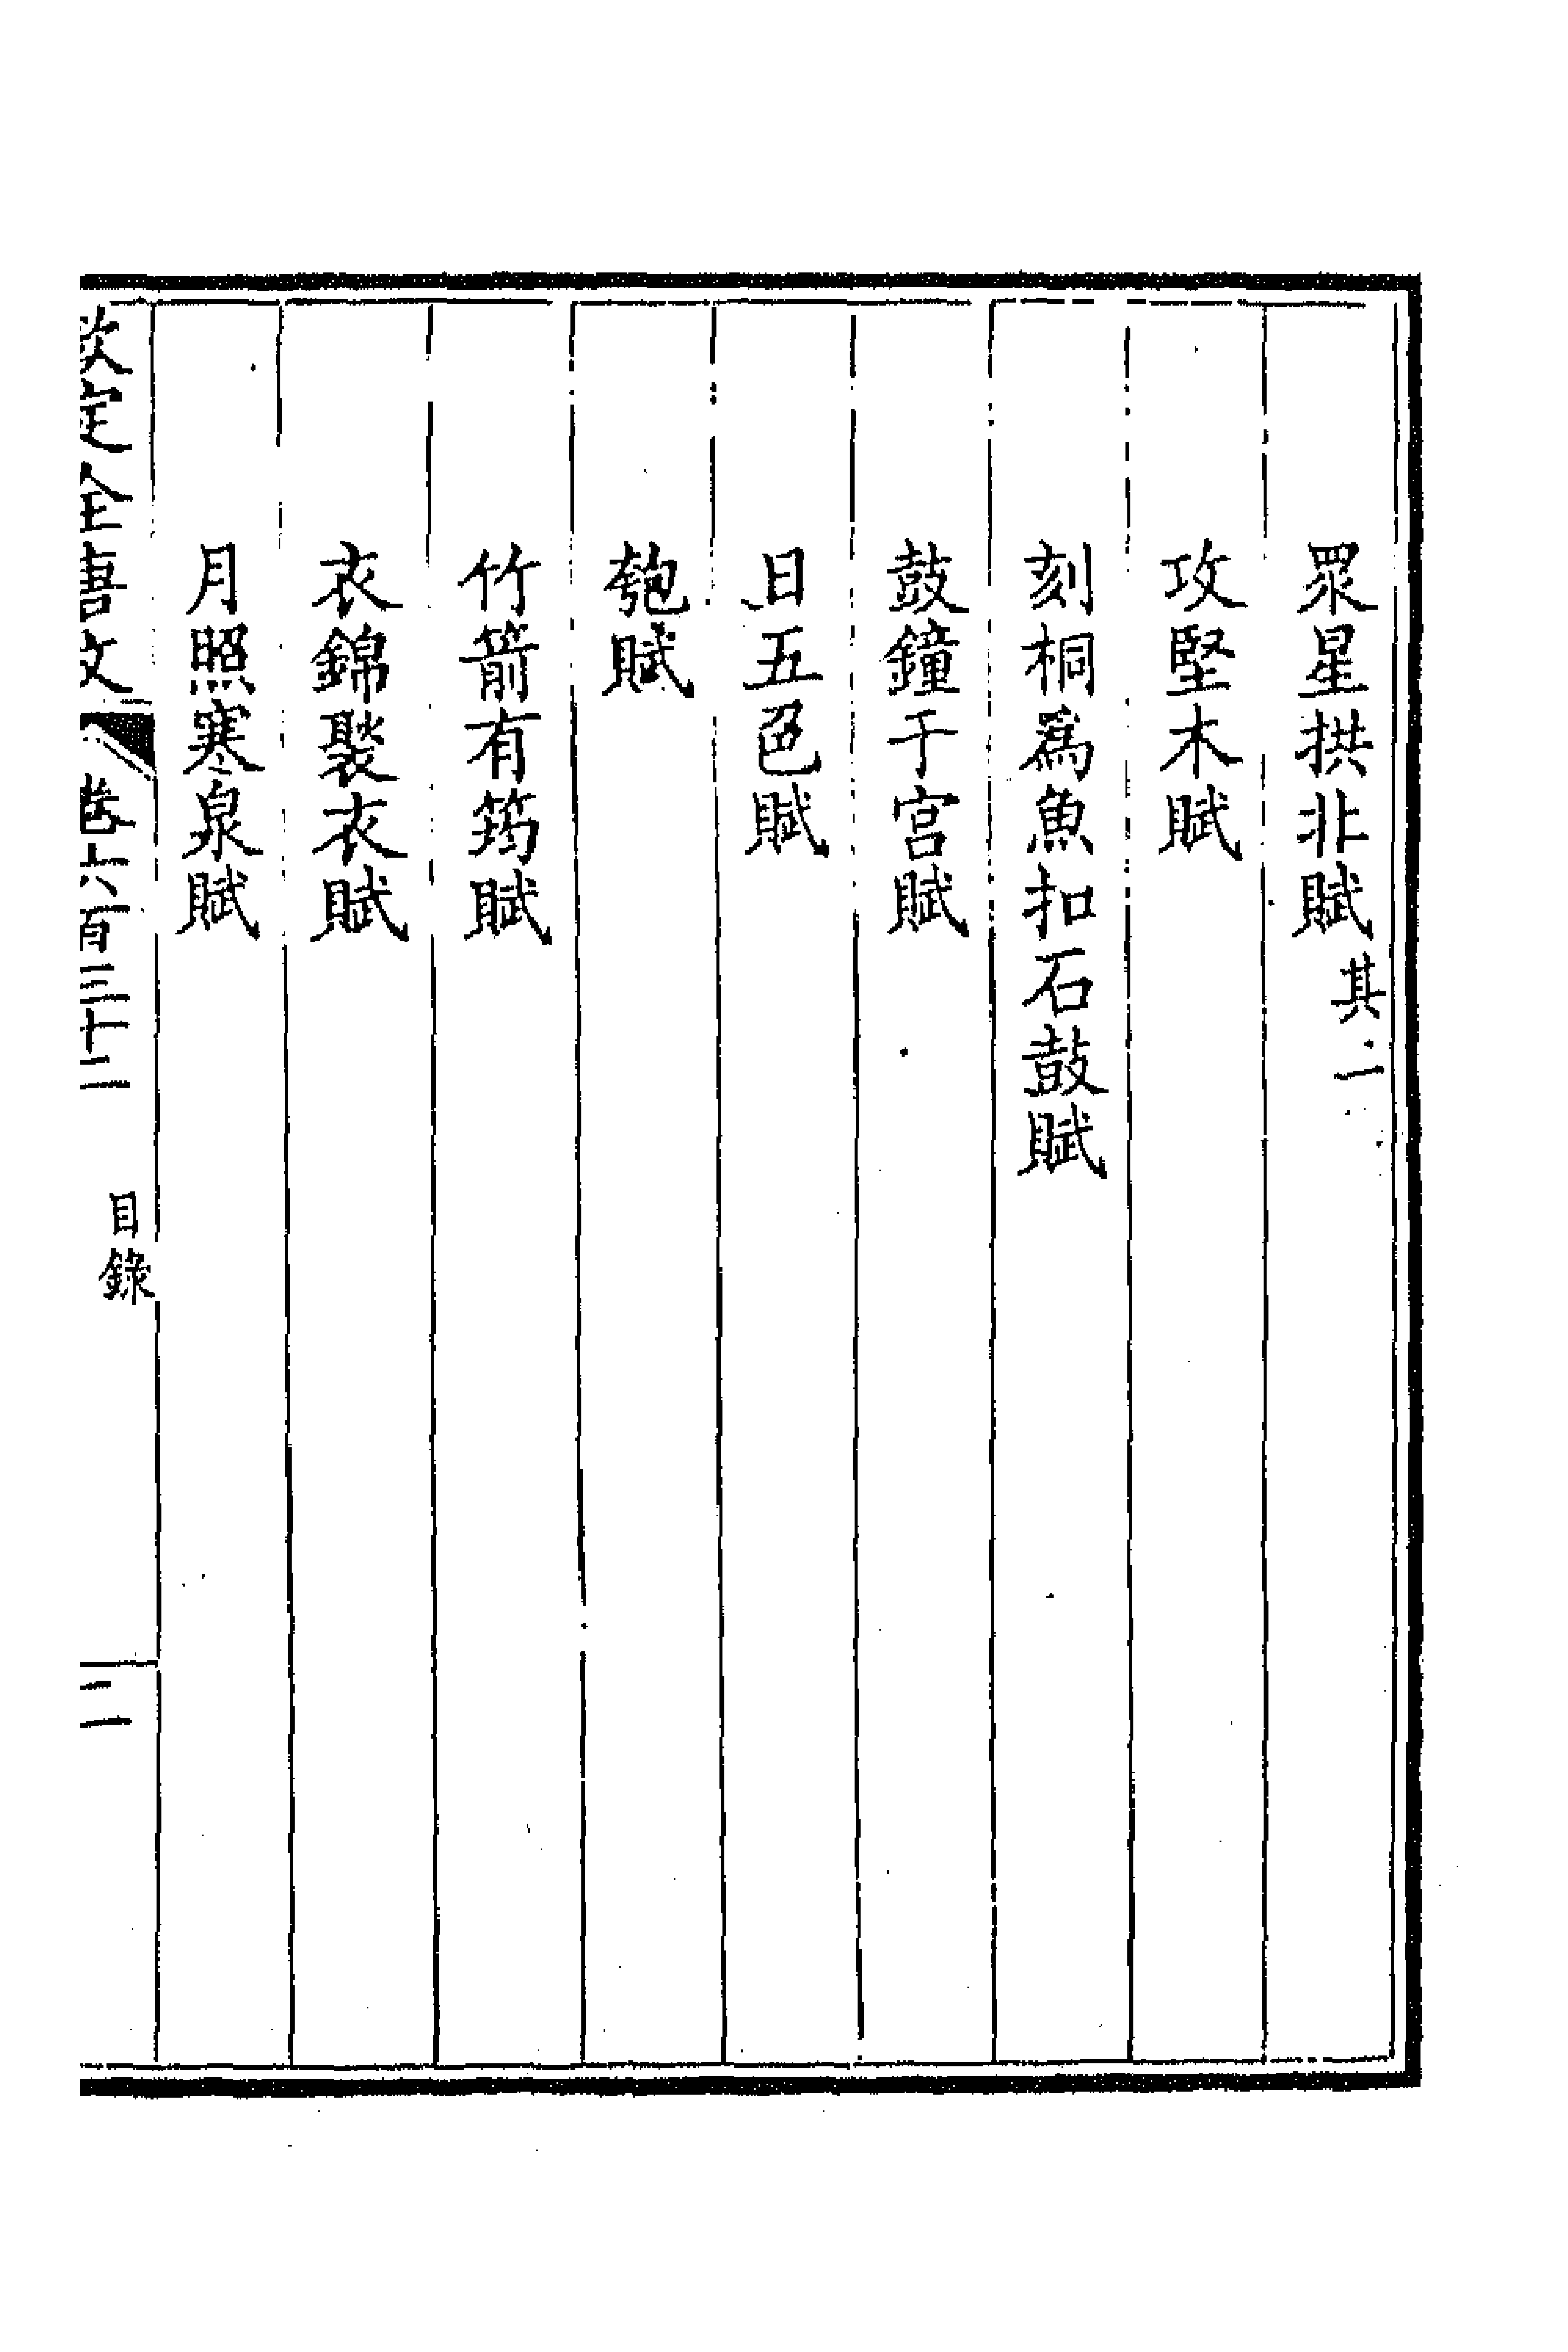 眾星拱北賦其二
攻堅木賦
刻桐爲魚扣石鼓賦
鼓鐘于宮賦
日五色賦
匏賦
竹箭有筠賦
衣錦褧衣賦
月照寒泉賦
欽定全唐文 卷六百三十二 目錄 二